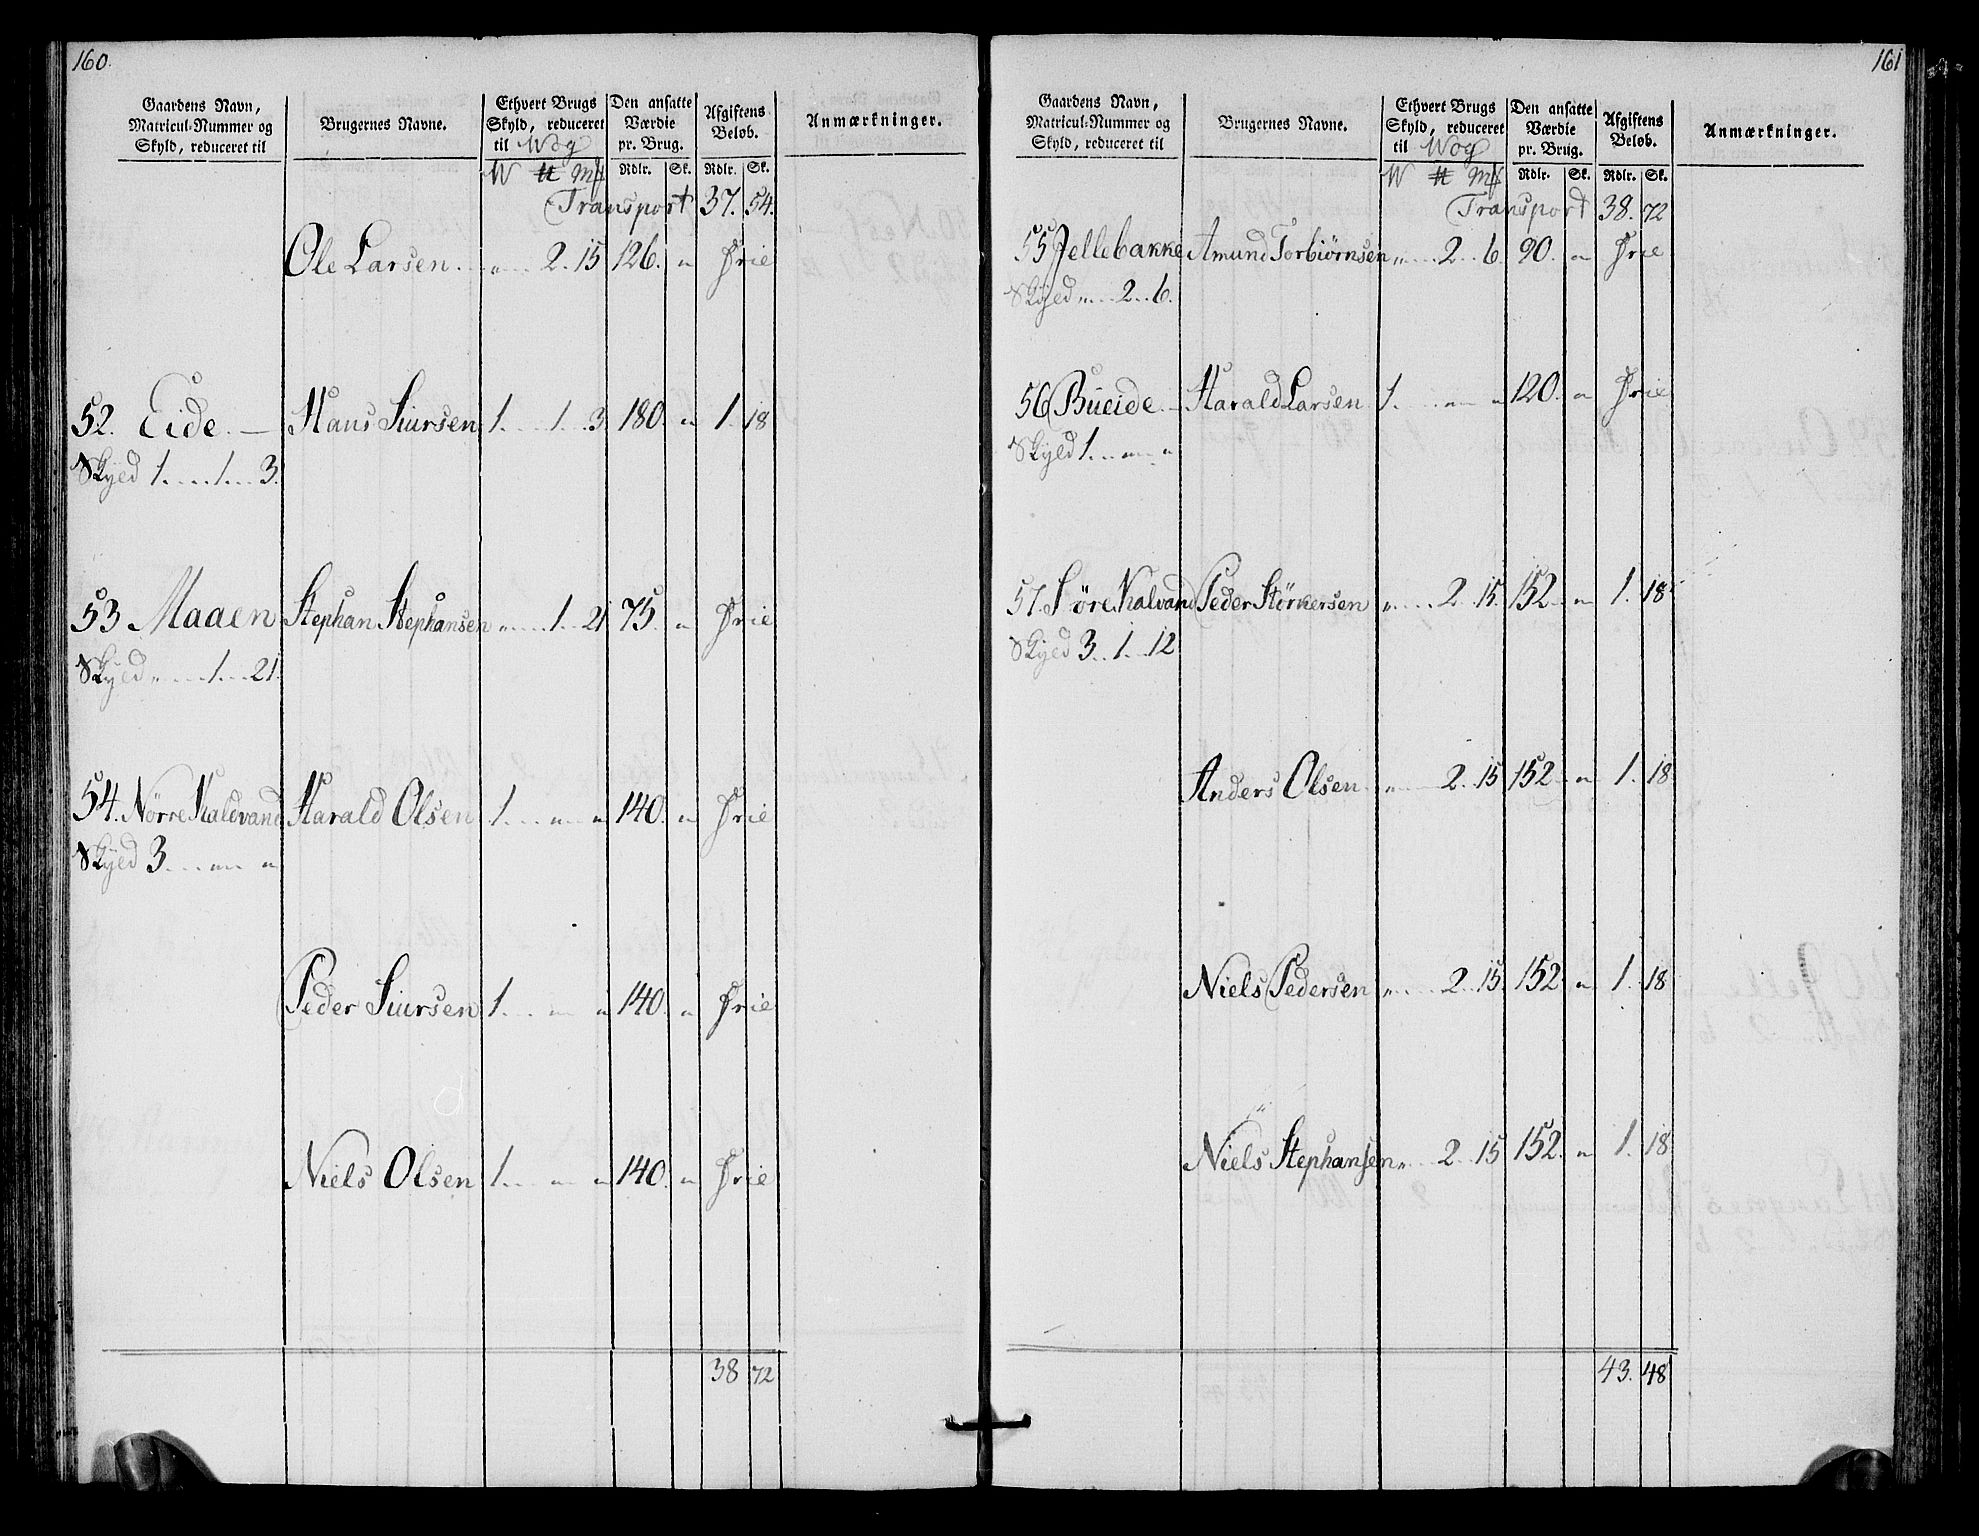 160.
Gaardens Navn, Matricul-Nummer og Skyld, reduceret til | Brugernes Navne. | Ethvert Brugs Skyld, reduceret til Wog | Den ansatte Værdie pr. Brug. | Afgiftens Beløb. | Anmærkninger.
W ℔ Mk | Rdlr. | Sk. | Rdlr. | Sk.
Transport 37. 54.
Ole Larsen „ 2. 15 126. „ Frie
52. Eide. — Hans Siursen 1. 1. 3 180. „ 1. 18
Skyld 1. 1. 3.
53 Maaen Stephan Stephansen „ 1. 21 75. „ Frie
Skyld „ 1. 21.
54. Nørre Kaldvand Harald Olsen 1. „ „ 140. „ Frie
Skyld 3. „ „
Peder Siursen 1. „ „ 140. „ Frie
Niels Olsen 1. „ „ 140. „ Frie
38 72
161
Gaardens Navn, Matricul-Nummer og Skyld, reduceret til | Brugernes Navne. | Ethvert Brugs Skyld, reduceret til Wog | Den ansatte Værdie pr. Brug. | Afgiftens Beløb. | Anmærkninger.
W ℔ Mk | Rdlr. | Sk. | Rdlr. | Sk.
Transport 38. 72
55 Jellebakke Amund Torbiørnsen „ 2. 6. 90. „ Frie
Skyld „ 2. 6.
56 Bueide. Harald Larsen 1. „ „ 120. „ Frie
Skyld 1. „ „
57. Søre Kalvand Peder Størkersen „ 2. 15. 152 „ 1. 18
Skyld 3. 1. 12
Anders Olsen „ 2. 15 152 „ 1. 18
Niels Pedersen „ 2. 15. 152 „ 1. 18
Niels Stephansen „ 2. 15 152. „ 1. 18
43. 48